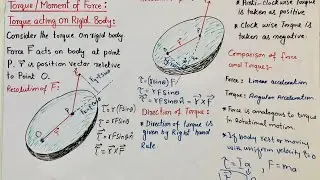 Torque / Moment of Force :
Torque acting on Rigid Body:
Consider the torque on rigid
body.
Force F acts on body at point
P. r is position vector relative
to Point O.
Resolution of F:
F
P
r
O
θ
τ = (r)(Fsinθ)
τ = rFsinθ
τ = rFsinθ n̂
τ = r × F
τ = (rsinθ) F
τ = rFsinθ
τ = rFsinθ n̂
τ = r × F
Direction of Torque:
* Direction of torque is
given by Right hand
Rule.
* Anti-clockwise torque
is taken as positive
* Clock wise Torque
is taken as negative
Comparison of Force
and Torque:-
Force : Linear acceleration
Torque : Angular Acceleration
* Force is analogous to torque
in rotational motion.
* If body rest or moving
with uniform velocity τ=0
τ = Iα , F = ma